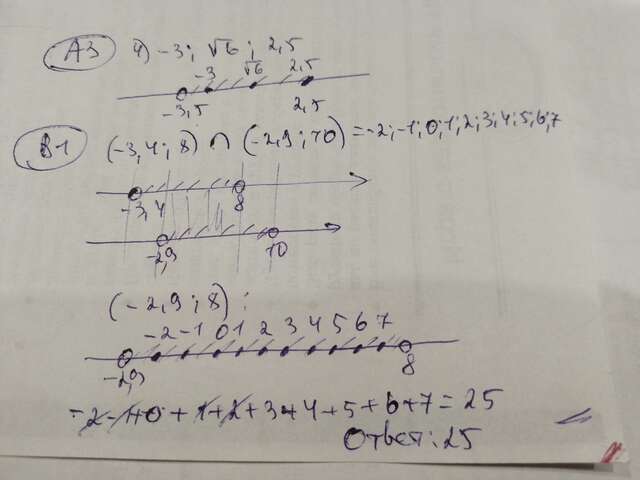 А3 4) -3; √6; 2,5
-3 √6 2,5
-3,5 2,5
В1 (-3,4; 8) ∩ (-2,9; 10) = -2; -1; 0; 1; 2; 3; 4; 5; 6; 7
-3,4 8
-2,9 10
(-2,9; 8):
-2 -1 0 1 2 3 4 5 6 7
-2,9 8
-2-1+0+1+2+3+4+5+6+7=25
Ответ: 25